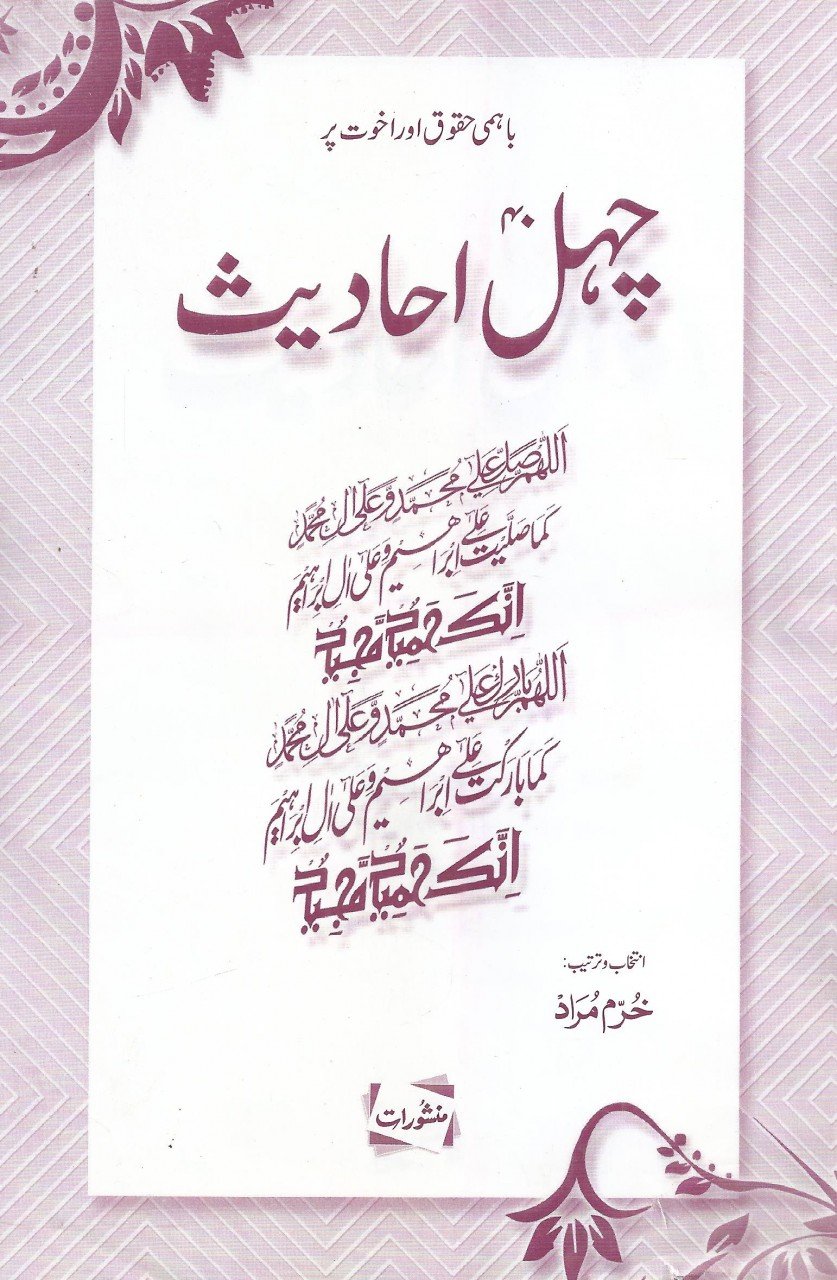 باہمی حقوق اور اخوت پر
۴۰
چہل احادیث
اَللّٰهُمَّ صَلِّ عَلٰى مُحَمَّدٍ وَّعَلٰى اٰلِ مُحَمَّدٍ
كَمَا صَلَّيْتَ عَلٰى اِبْرَاهِيْمَ وَعَلٰى اٰلِ اِبْرَاهِيْمَ
اِنَّكَ حَمِيْدٌ مَّجِيْدٌ
اَللّٰهُمَّ بَارِكْ عَلٰى مُحَمَّدٍ وَّعَلٰى اٰلِ مُحَمَّدٍ
كَمَا بَارَكْتَ عَلٰى اِبْرَاهِيْمَ وَعَلٰى اٰلِ اِبْرَاهِيْمَ
اِنَّكَ حَمِيْدٌ مَّجِيْدٌ
انتخاب و ترتیب:
خُرّم مُراد
منشُورات